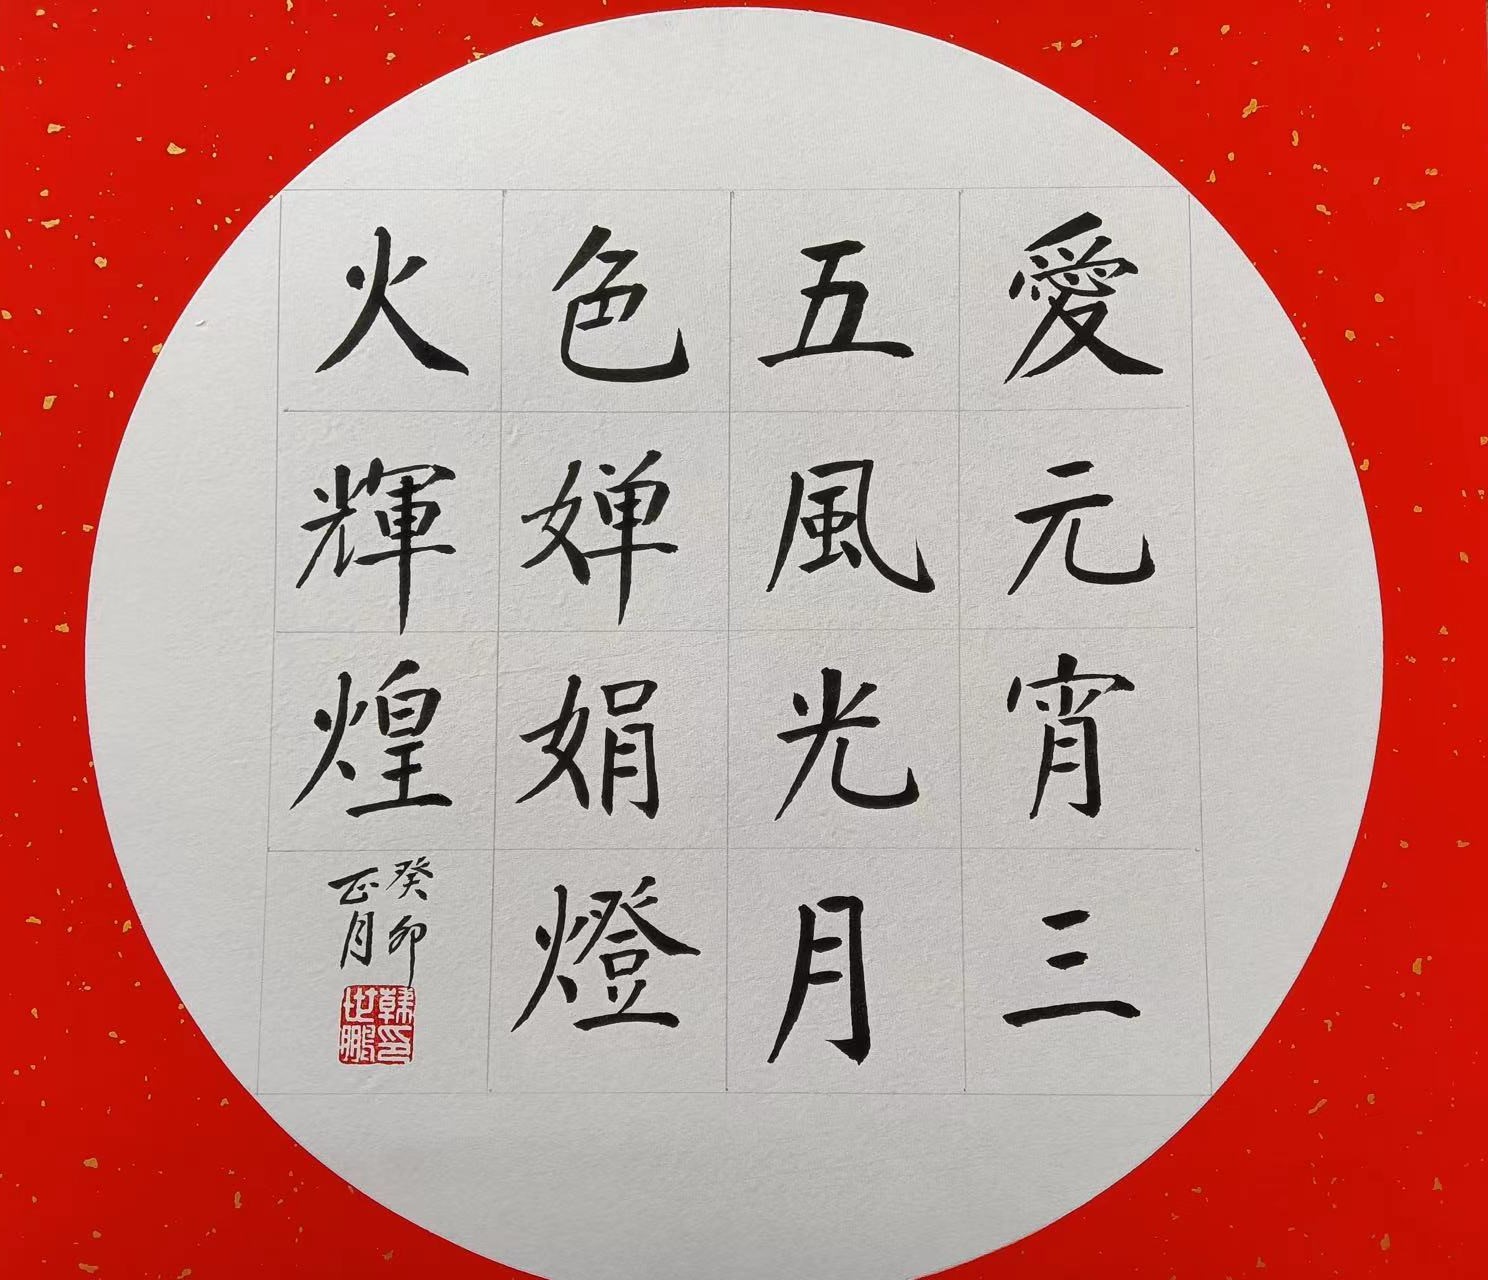 愛元宵三
五風光月
色婵娟燈
火輝煌
癸卯
正月
韓印
世鵬